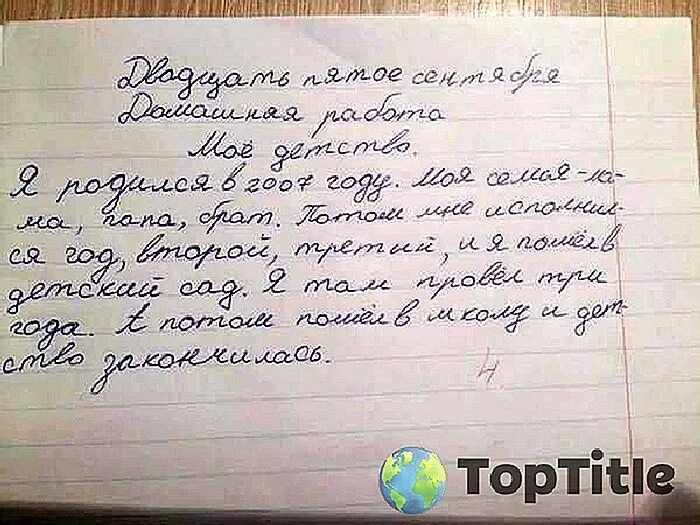 Двадцать пятое сентября
Домашняя работа
Моё детство.
Я родился в 2007 году. Моя семья-ма-
ма, папа, брат. Потом мне исполнил-
ся год, второй, третий, и я пошёл в
детский сад. Я там провёл три
года. А потом пошёл в школу и дет-
ство закончилась.
4
TopTitle